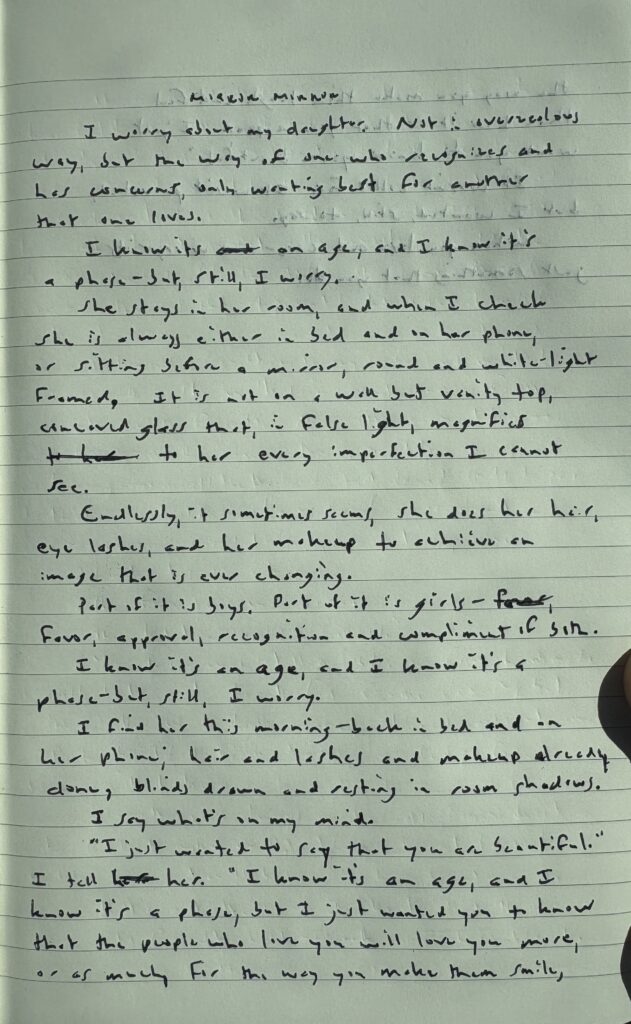 MIRROR MIRROR
I worry about my daughter. Not in overzealous
way, but the way of one who recognizes and
has concerns, only wanting best for another
that one loves.
I know its an age, and I know it's
a phase-but, still, I worry.
She stays in her room, and when I check
she is always either in bed and on her phone,
or sitting before a mirror, round and white-light
framed. It is not on a wall but vanity top,
concaved glass that, in false light, magnifies
to her every imperfection I cannot
see.
Endlessly, it sometimes seems, she does her hair,
eye lashes, and her makeup to achieve an
image that is ever changing.
Part of it is boys. Part of it is girls-
favor, approval, recognition and compliment of both.
I know it's an age, and I know it's a
phase-but, still, I worry.
I find her this morning-back in bed and on
her phone; hair and lashes and makeup already
done, blinds drawn and resting in room shadows.
I say what's on my mind.
"I just wanted to say that you are beautiful."
I tell her. "I know it's an age, and I
know it's a phase, but I just wanted you to know
that the people who love you will love you more,
or as much, for the way you make them smile,